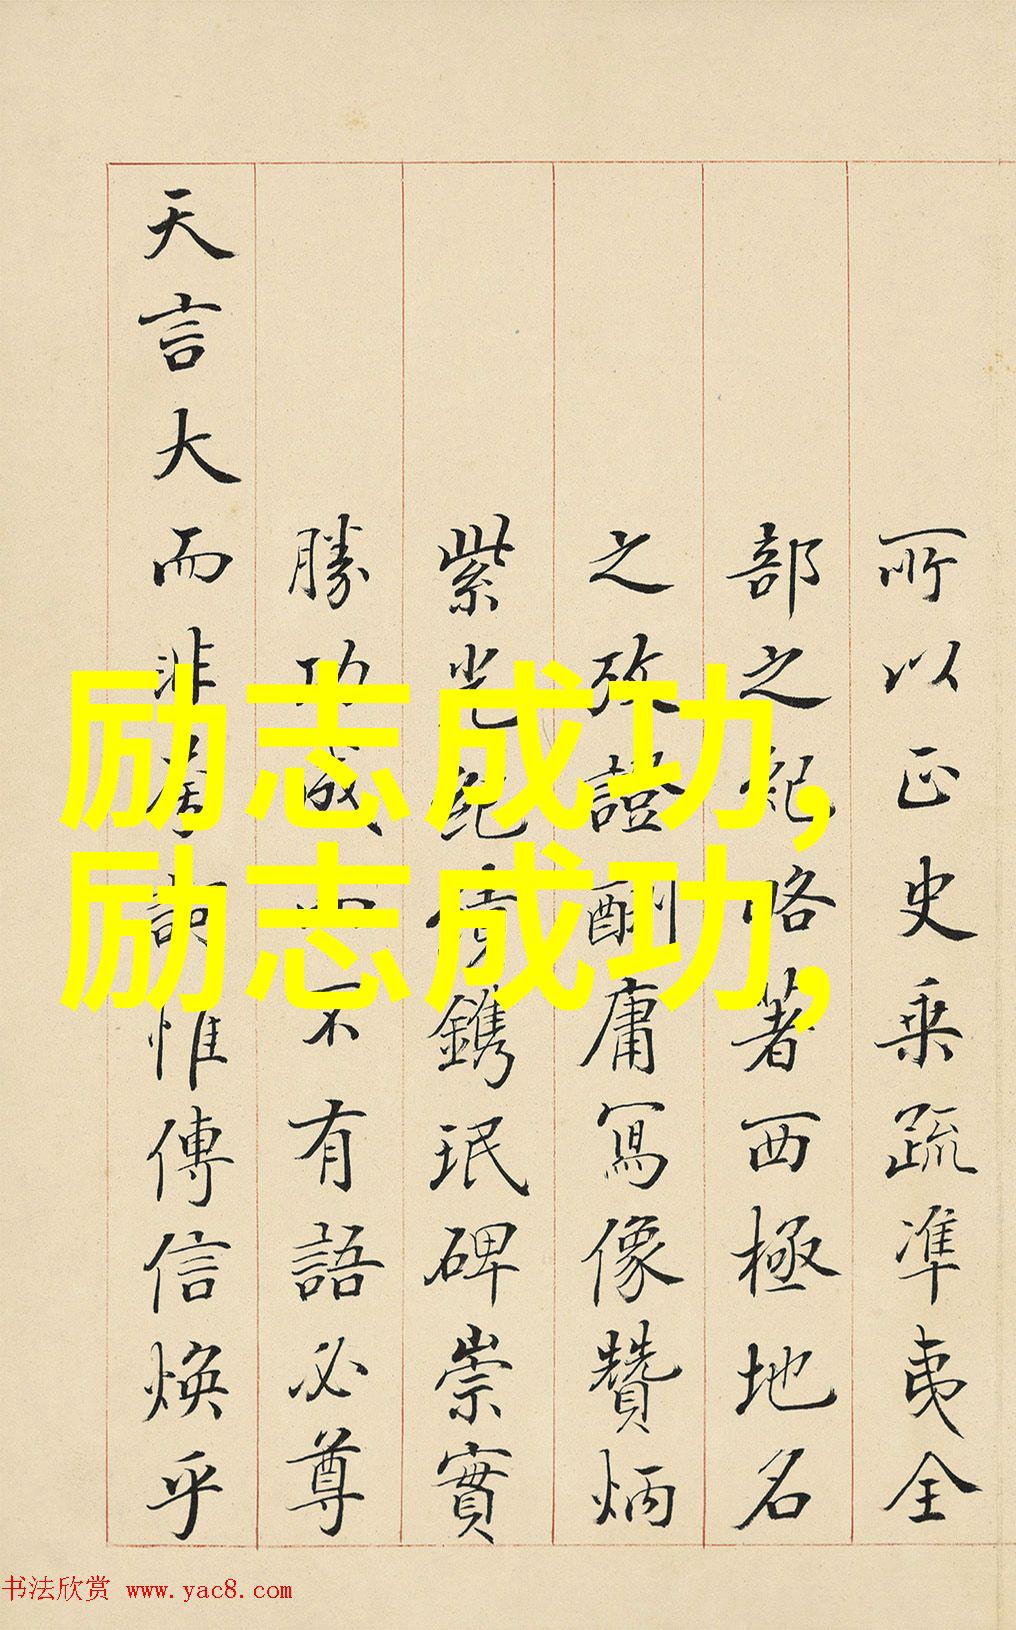 所以正史乘疏準夷全
部之紀略著西極地名
之弥證酬庸寫像贊炳
紫光紀績鐫珉碑崇實
勝功成不有語必尊
天言大而非誇讕惟傳信煥乎
励志成功,
励志成功,
书法欣赏 www.yac8.com